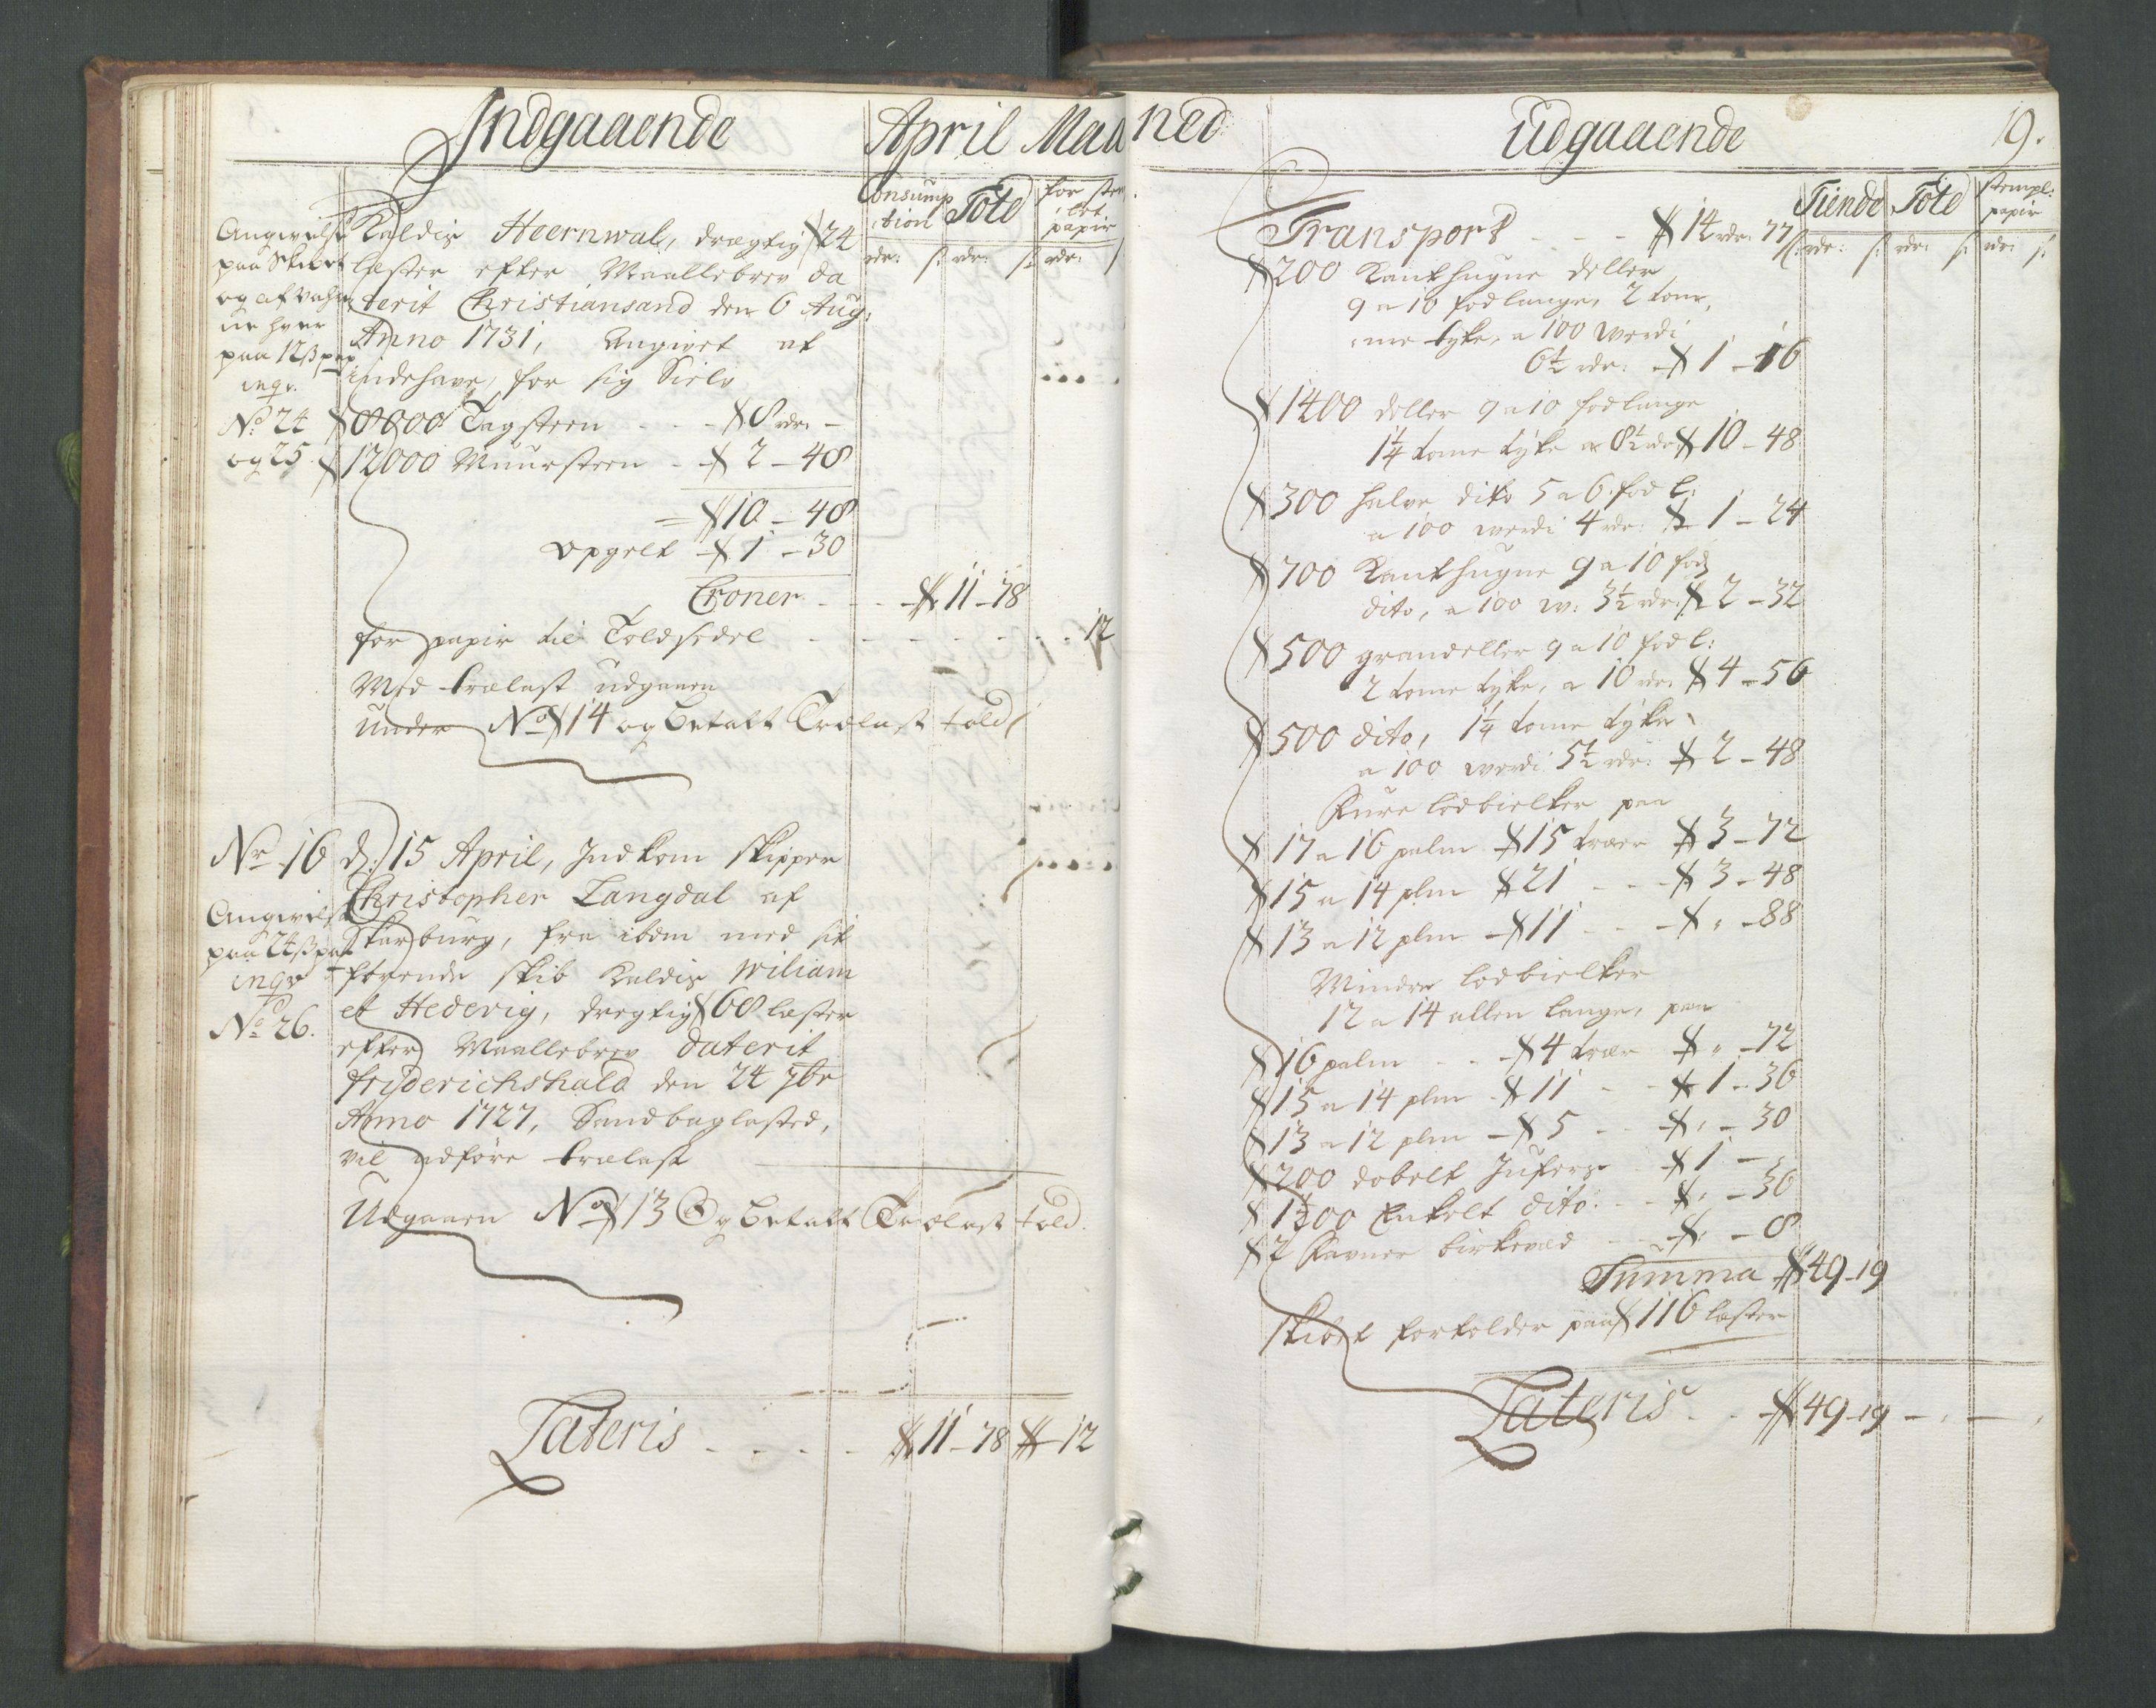 Indgaaende April Maaned Udgaaende 19.
Consumption Told for stemlet papir
rdr: s: rdr: s: rdr: s:
Angivelse
paa Skibet
og af vahrene
hver
paa 12 s pap
No 24
og 25
Kaldis Heernwal, drægtig 24
læster efter Maallebrev da
terit Christiansand den 6 Aug:
Anno 1731, Angivet at
indehave, for sig Sielv
8000 Tagsteen - - - 8 rdr: -
12000 Muursteen - 2 - 48
= 10 - 48
Opgelt 1 - 30
Croner - - - 11 - 78
for papir til Toldsedel - - - - - - 12
Med trælast udgaaen
Under No 14 og betalt Trælast told
Nr 16
Angivelse
paa 24 s pap
No 26.
d: 15 April, Indkom skipper
Christopher Langdal af
fra ibdm med sit
førende skib Kaldis Wiliam
et Hedevig, dregtig 68 læster
efter Maallebrev daterit
friderichshald den 24 7br
Anno 1727, Sandbaglasted,
vil udføre trælast
Udgaaen No 13 Og betalt Trælast told.
Lateris - - - - - 11 - 78 12
Tiende Told stempl: papir
rdr: s: rdr: s: rdr: s:
Transport - - - 14 rdr: 77 s:
200 Kanthugne deller
9 a 10 fod lange, 2 tom,
me tyke, a 100 werdi
6½ rdr: 1 - 16
1400 deller 9 a 10 fod lange
1¼ tome tyke a 8½ rdr 10 - 48
300 halve dito 5 a 6 fod l:
a 100 werdi 4 rdr: 1 - 24
700 Kanthugne 9 a 10 fod
dito, a 100 w: 3½ rdr: 2 - 32
500 grandeller 9 a 10 fod l:
2 tome tyke, a 10 rdr: 4 - 56
500 dito, 1¼ tome tyke
a 100 werdi 5½ rdr: 2 - 48
Fure lodbielker paa
17 a 16 palm 15 træer 3 - 72
15 a 14 plm 21 - - - 3 - 48
13 a 12 plm - 11 - - - " - 88
Mindre lodbielker
12 a 14 allen lange, paa
16 palm - - - 4 træer " - 72
15 a 14 plm 11 - - 1 - 36
13 a 12 plm - 5 - - " - 30
200 dobelt Jufers - 1 - "
1½00 Enkelt dito: - - " - 36
2 Favner birkeved - - " - 8
Summa 49 - 19
skibet forholder paa 116 læster
Lateris - - 49 - 19 - " - "